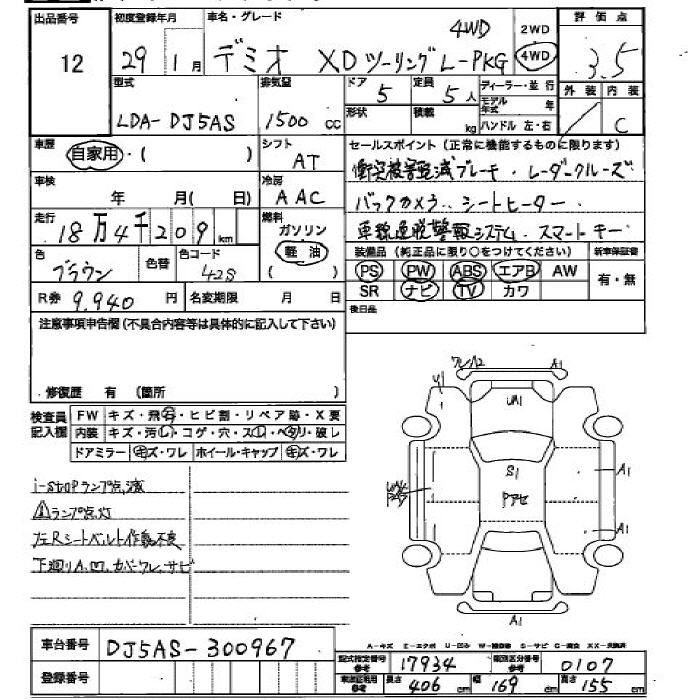 出品番号 初度登録年月 車名・グレード 2WD 評価点
12 29 1月 デミオ XDツーリングL-PKG 4WD 4WD 3.5
型式 排気量 ドア 定員 ディーラー・並行 外装 内装
LDA-DJ5AS 1500cc 5 5人 モデル年式 年 C
形状 積載 kg ハンドル 左・右
車歴 シフト セールスポイント(正常に機能するものに限ります)
自家用・( ) AT 衝突被害軽減ブレーキ・レーダークルーズ
車検 冷房
年 月(日) AAC バックカメラ シートヒーター
走行 燃料 車線逸脱警報システム スマートキー
18万4千209km ガソリン 軽油 ( )
色 色替 色コード 装備品(純正品に限り○をつけてください) 新車保証書
ブラウン 42S PS PW ABS エアB AW 有・無
R券 9,940円 名変期限 月 日 SR ナビ TV カワ
注意事項申告欄(不具合内容等は具体的に記入して下さい) 後日品
修復歴 有(箇所 )
検査員記入欄 FW キズ・飛石・ヒビ割・リペア跡・X要
内装 キズ・汚レ・コゲ・穴・スレ・ヘタリ・破レ
ドアミラー キズ・ワレ ホイール・キャップ キズ・ワレ
A1
UA1
S1
A1
A1
A1
i-stopランプ点滅
ランプ点灯
左Rシートベルト作動不良
下廻りA.凹.カバーワレ.サビ
車台番号 DJ5AS-300967
登録番号
A-キズ E-エクボ U-凹み W-補修跡 S-サビ C-腐食 XX-交換済
型式指定番号 参考 17934 類別区分番号 参考 0107
車庫証明用 参考 長さ 406cm 幅 169cm 高さ 155cm